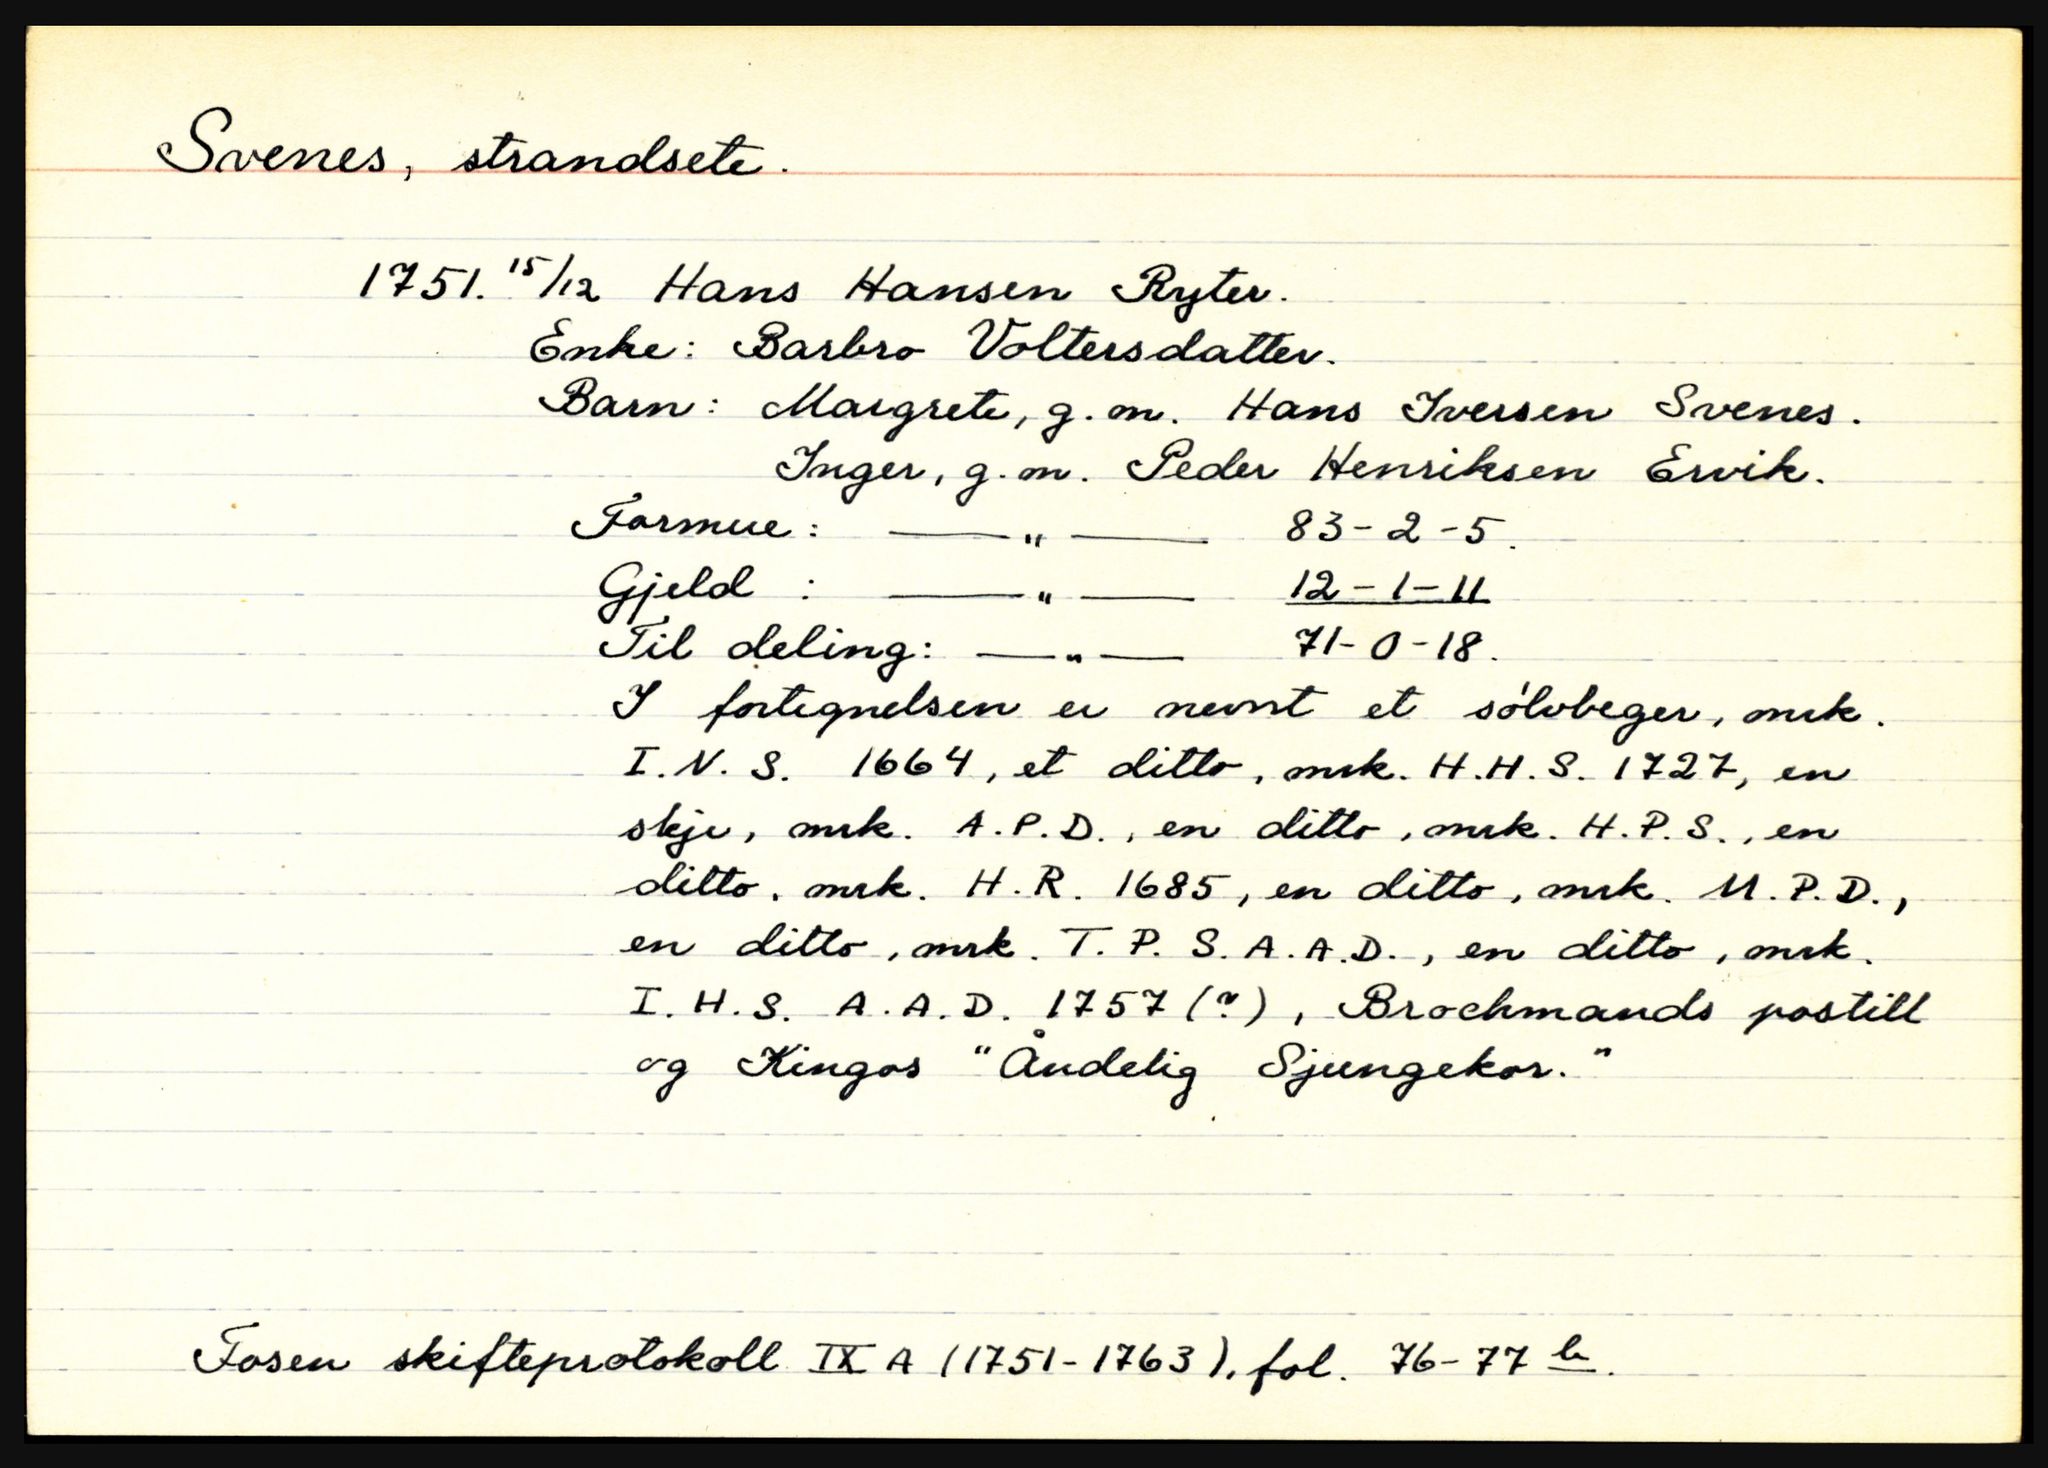 Svenes, strandsete.
1751. 15/12 Hans Hansen Ryter.
Enke: Barbro Voltersdatter.
Barn: Margrete, g.m. Hans Iversen Svenes.
Inger, g.m. Peder Henriksen Ervik.
Formue: —„— 83-2-5.
Gjeld : —„— 12-1-11
Til deling: —„— 71-0-18.
I fortegnelsen er nevnt et sølvbeger, mrk.
I.N.S. 1664, et ditto, mrk. H.H.S. 1727, en
skje, mrk. A.P.D., en ditto, mrk. H.P.S., en
ditto, mrk. H.R. 1685, en ditto, mrk. M.P.D.,
en ditto, mrk. T.P.S.A.A.D., en ditto, mrk.
I.H.S. A.A.D. 1757 (?), Brochmands postill
og Kingos "Åndelig Sjungekor."
Fosen skifteprotokoll IX A (1751-1763), fol. 76-77 b.